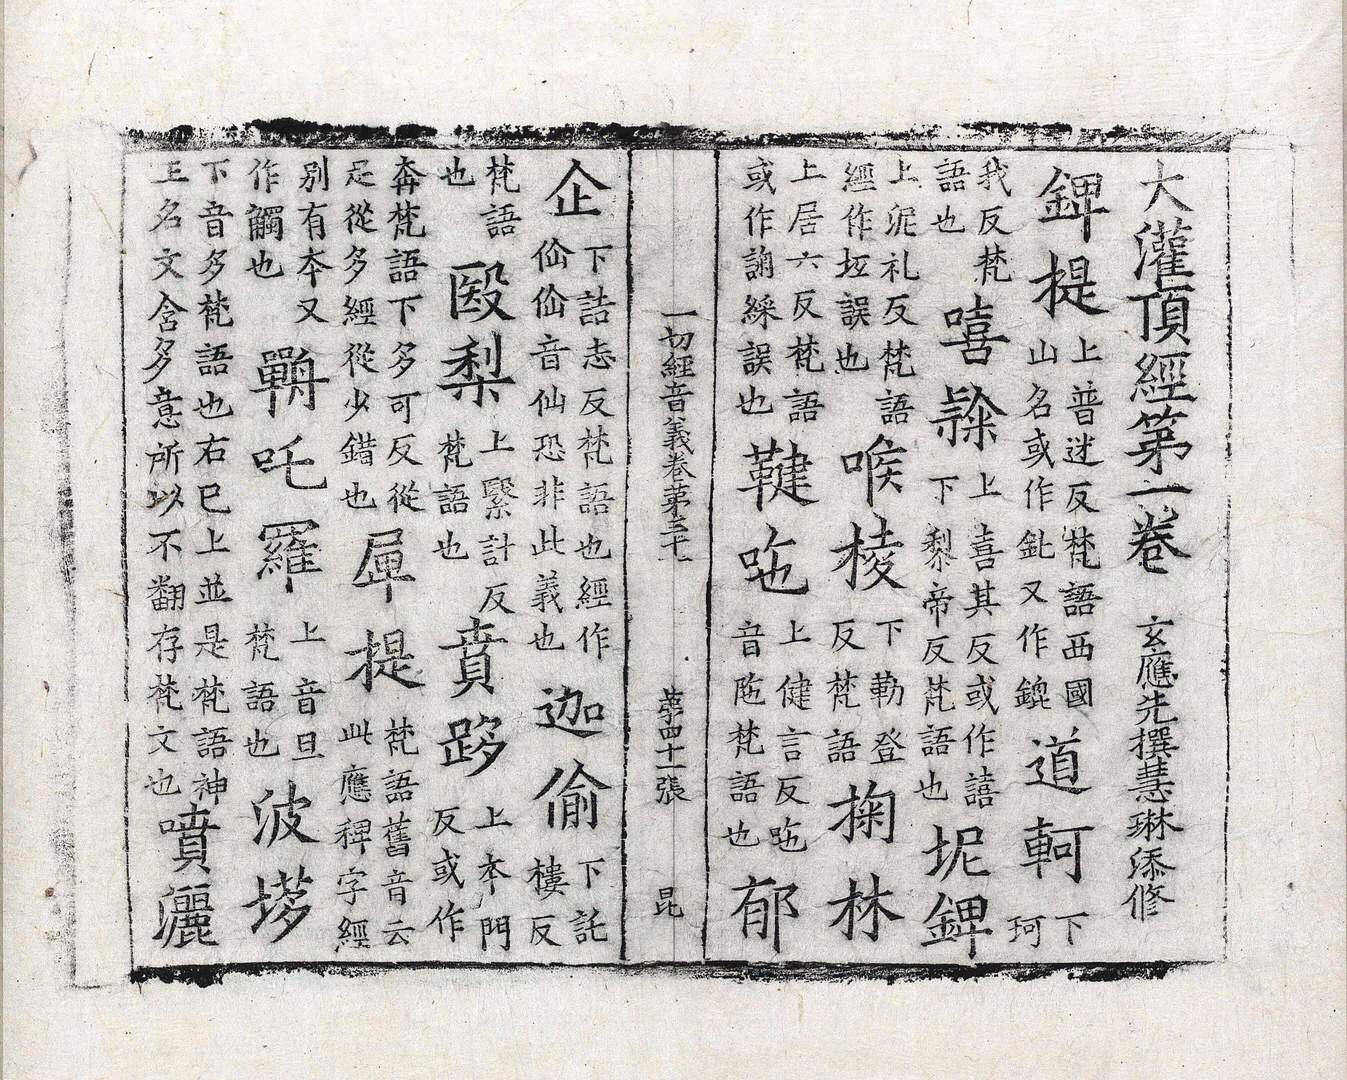 大灌頂經第一卷 玄應先撰慧琳添修
錍提 上普迷反梵語西國山名或作鈚又作鎞 道軻 下珂
我反梵語也 嘻隸 上喜其反或作譆下梨帝反梵語也 坭錍
上泥礼反梵語經作坘誤也 喉棱 下勒登反梵語 掬林
上居六反梵語或作諊綵誤也 鞬吔 上健言反吔音陁梵語也 郁
一切經音義卷第三十一 第四十一張 昆
企 下詰恚反梵語也經作仚仚音仙恐非此義也 迦偷 下託樓反
梵語也 毉梨 上繄計反梵語也 賁跢 上本門反或作
奔梵語下多可反從足從多經從少錯也 提 梵語舊音云此應稺字經
別有本又作觸也 吒羅 上音旦梵語也 波
下音多梵語也右已上並是梵語神王名文含多意所以不翻存梵文也 噴灑